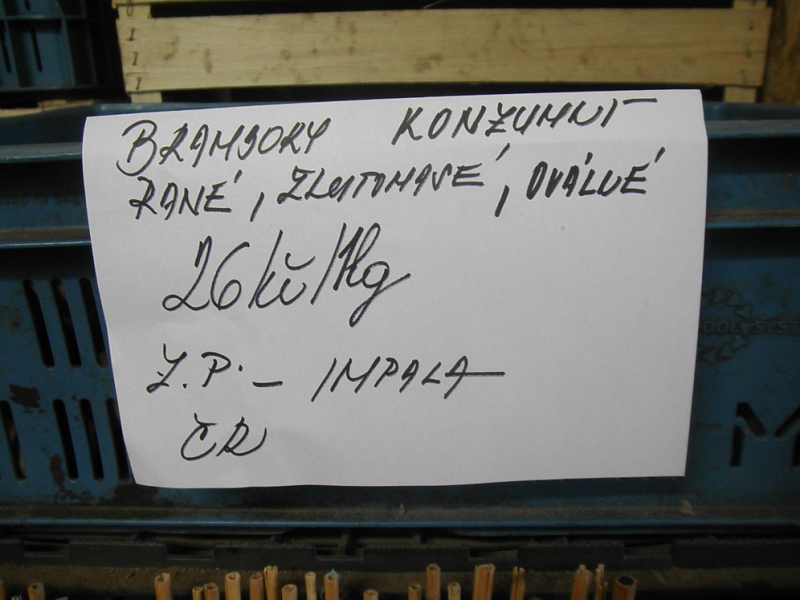 BRAMBORY KONZUMNÍ
RANÉ, ŽLUTOMASÉ, OVÁLNÉ
26 Kč/1kg
Z.P. - IMPALA
ČR